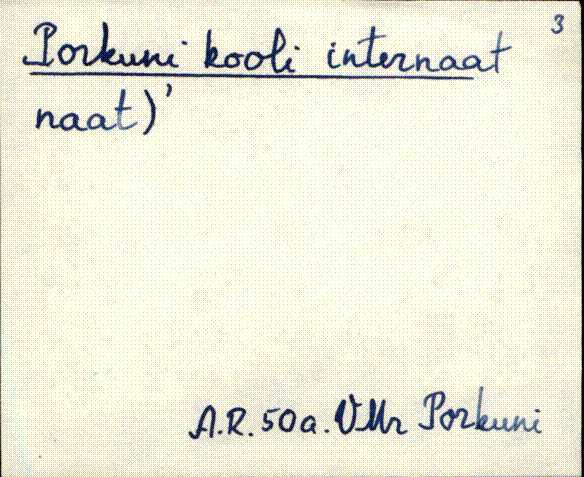 3
Porkuni kooli internaat
naat)'
A.R. 50a. VMr Porkuni